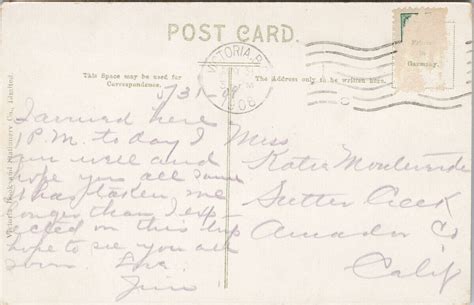 POST CARD.
VICTORIA, B.
1908
This Space may be used for
Correspondence.
The Address only to be written here.
Printed
in
Germany.
Victoria Book and Stationery Co., Limited.
8/31-08
I arrived here
1 P.M. to day I
am well and
hope you all same
I has taken me
longer than I exp-
ected on this trip
hope to see you all
soon. Love
Jim
Miss
Katie
Sutter Creek
Amador Co
Calif